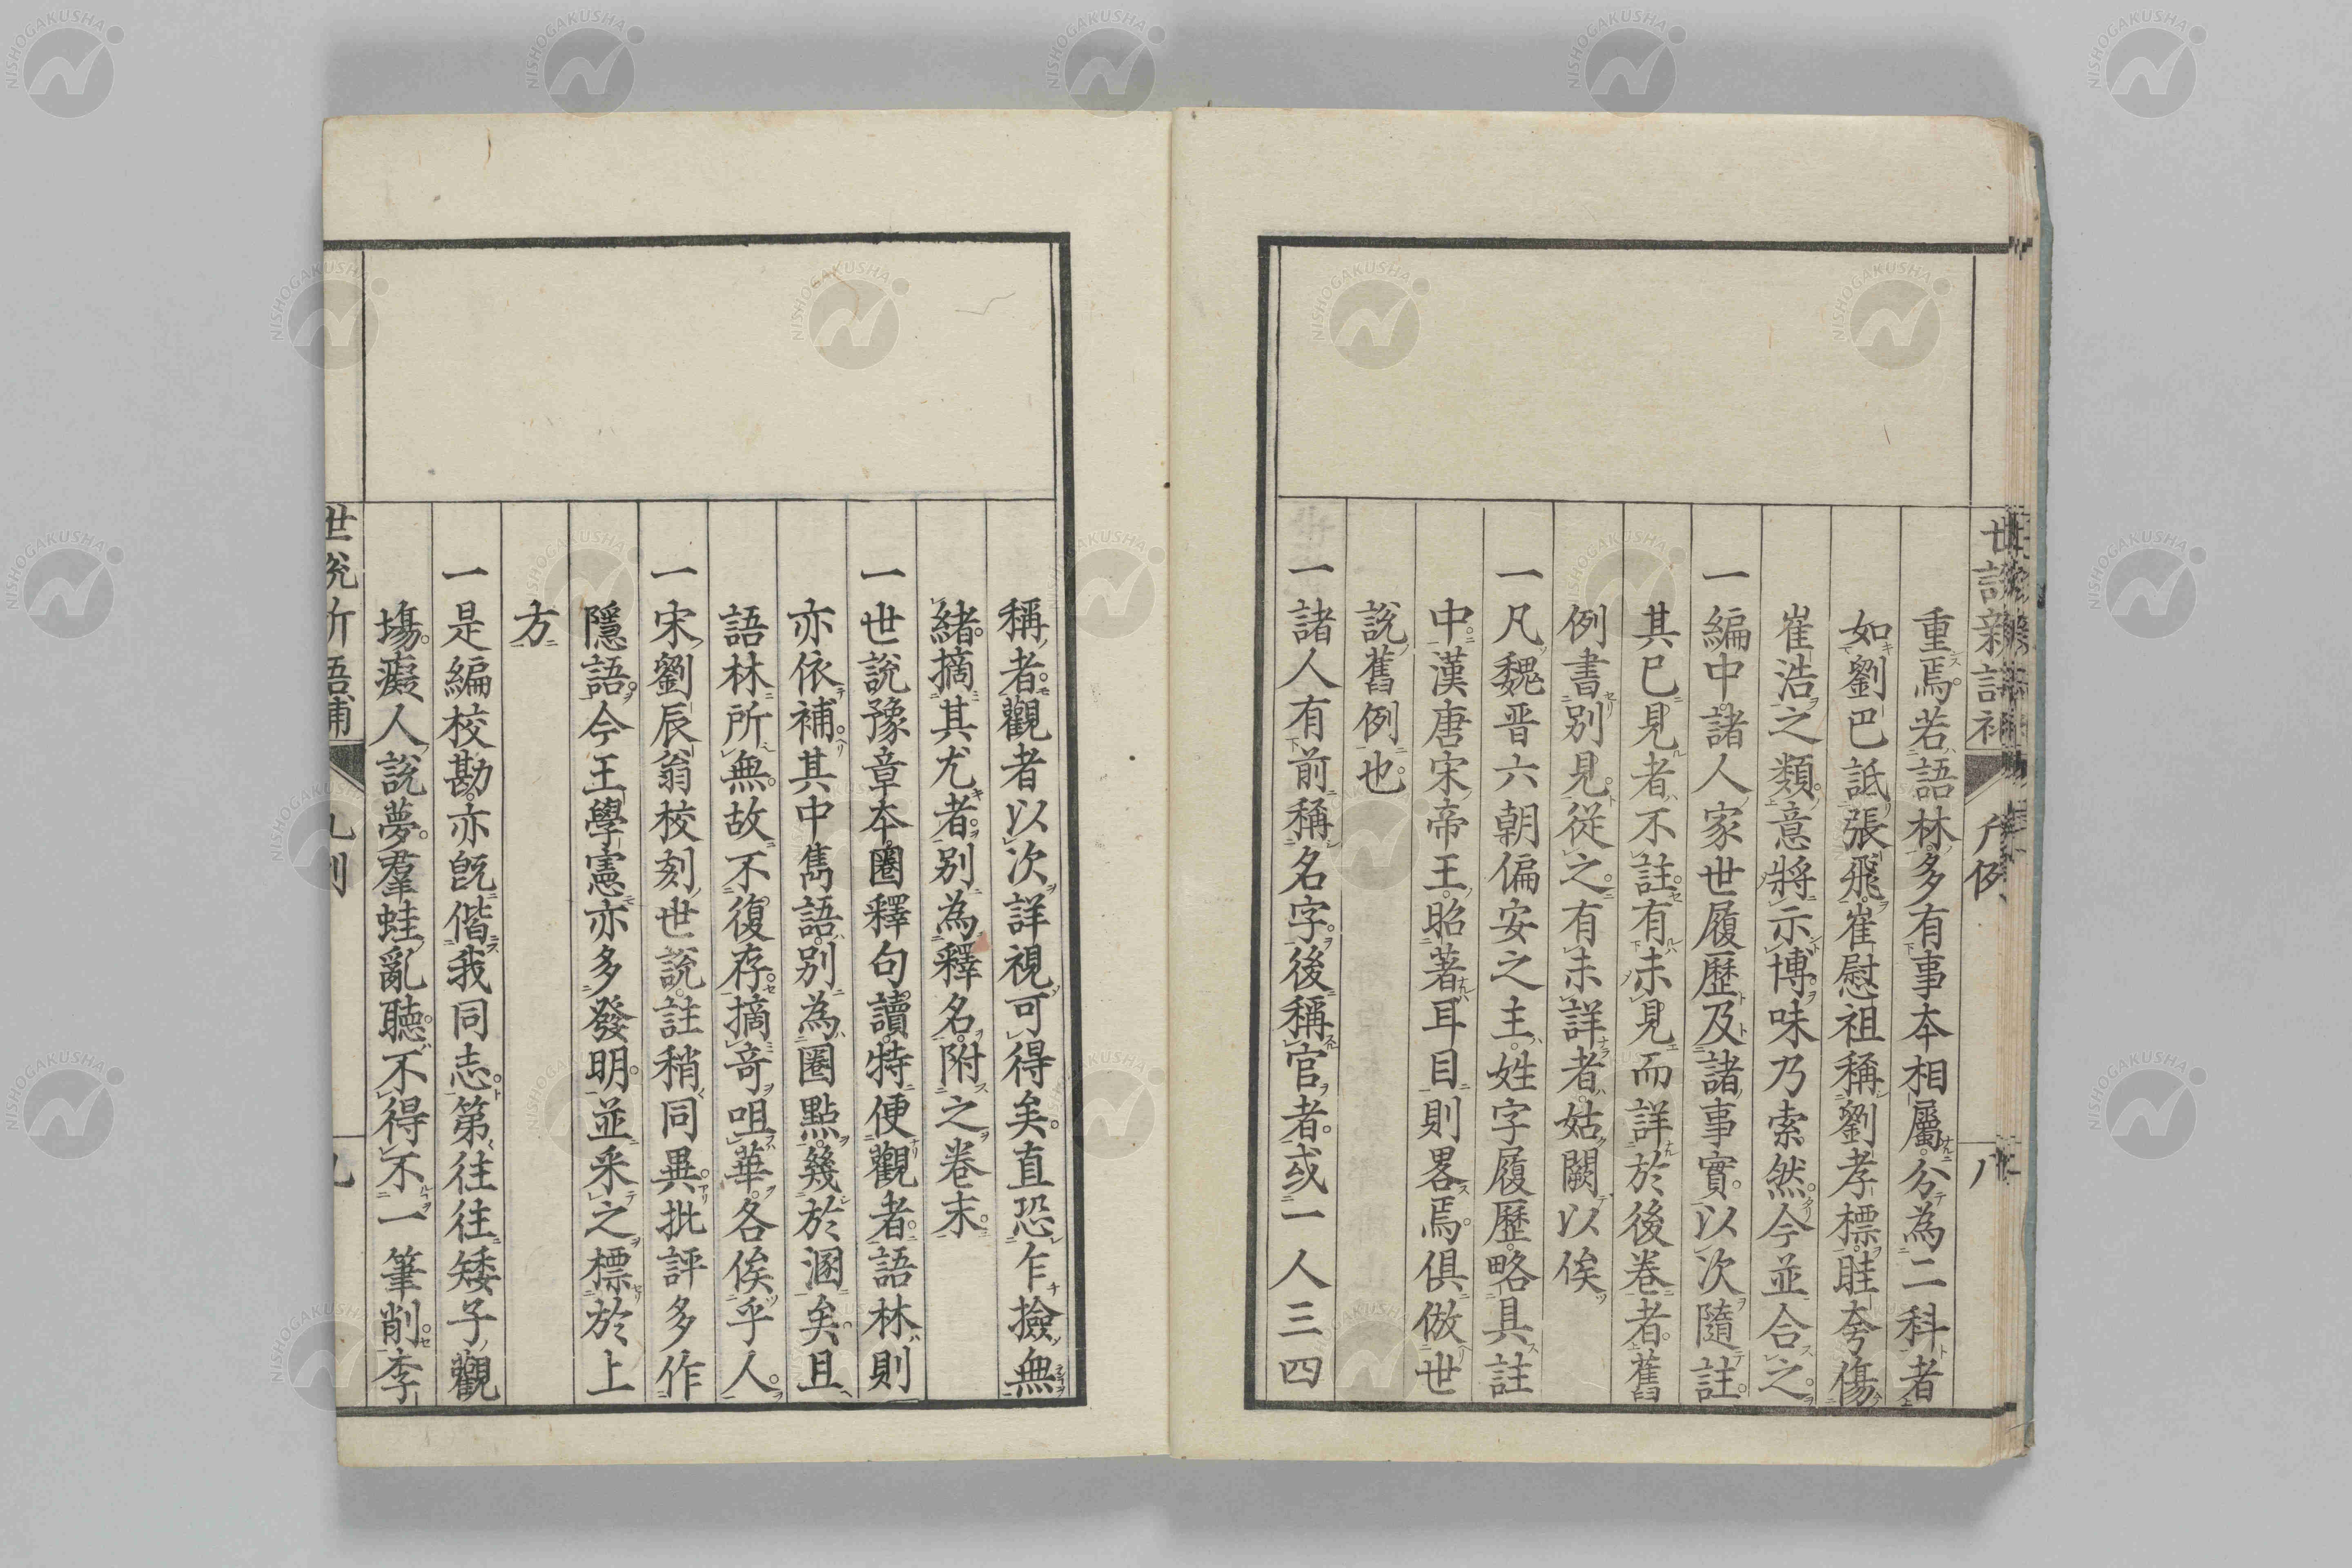 重焉若語林多有事本相屬分為二科者
如劉巴詆張飛崔慰祖稱劉孝標眭夸傷
崔浩之類意將示博味乃索然今並合之
一編中諸人家世履歷及諸事實以次隨註
其已見者不註有未見而詳於後卷者舊
例書別見從之有未詳者姑闕以俟
一凡魏晋六朝偏安之主姓字履歷略具註
中漢唐宋帝王昭著耳目則畧焉俱倣世
說舊例也
一諸人有前稱名字後稱官者或一人三四
稱者觀者以次詳視可得矣直恐乍撿無
緒摘其尤者別為釋名附之卷末
一世說豫章本圈釋句讀特便觀者語林則
亦依補其中雋語別為圈點幾於溷矣且
語林所無故不復存摘奇咀華各俟乎人
一宋劉辰翁校刻世說註稍同異批評多作
隱語今王學憲亦多發明並采之標於上
方
一是編校勘亦既偕我同志第往往矮子觀
塲癡人說夢羣蛙亂聽不得不一筆削李